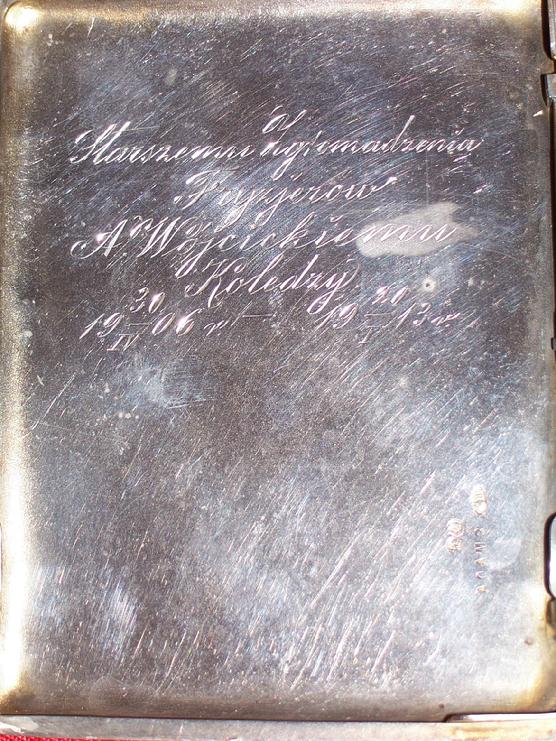 Starszemu Zgromadzenia
Fryzjerów
A. Wójcickiemu
Koledzy
19 30/IV 06 r. — 19 20/I 13 r.